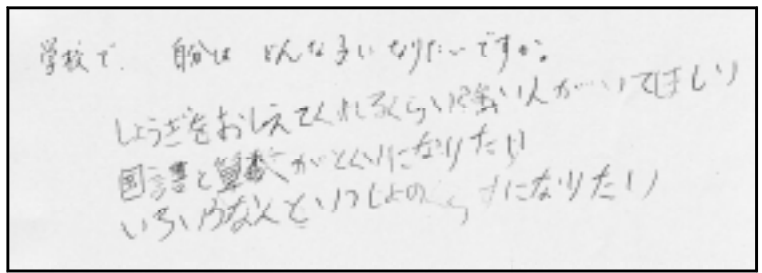 学校で、自分は どんな子になりたいですか。
しょうぎをおしえてくれるくらい強い人がいてほしい
国語と算数がとくいになりたい
いろいろな人といっしょの になりたい